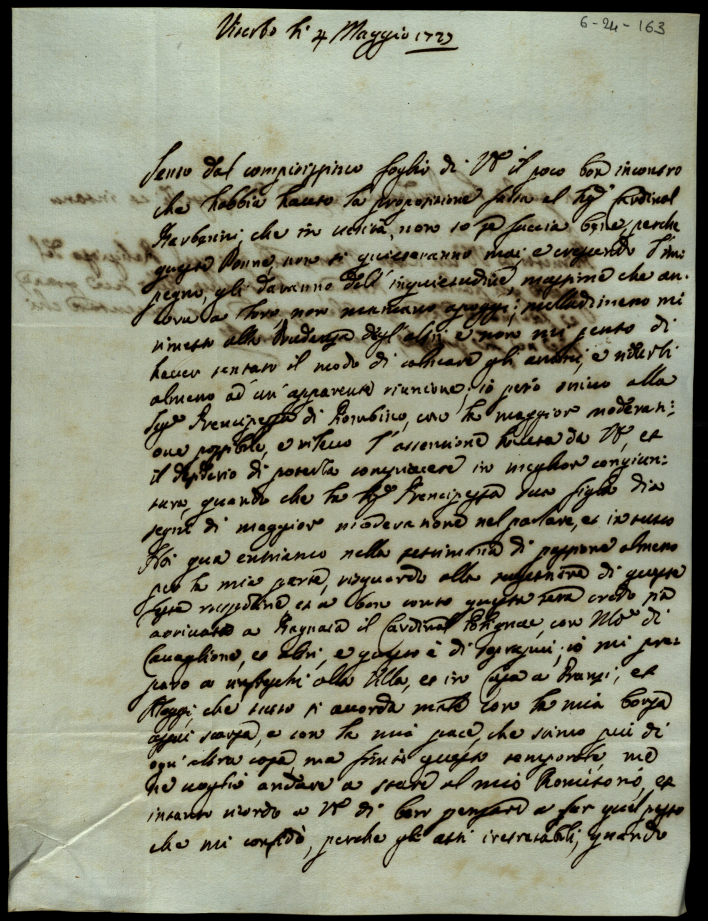 6-24-163
Viterbo li 4 Maggio 1727
Sento dal compitissimo foglio di VS il poco bon incontro
che habbia hauto la propositione fatta al Sigr Cardinal
Barberini, che in verità non so se faccia bene, perche
queste Donne, non si quieteranno mai e crescendo l'im:
pegno, gli daranno dell'inquietudine, massime che an:
cora a loro non mancano appoggi; nulladimeno mi
rimetto alla Prudenza degl'altri e non mi pento di
haver tentato il modo di calmare gli animi, e ridurli
almeno ad un'apparente riunione; io però scrivo alla
Sigra Prencipessa di Piombino, con la maggior moderati:
one possibile, e rilevo l'attentione hauta da VS, et
il desiderio di poterla compiacere in miglior congiun:
tura, quando che la Sigra Prencipessa sua figlia dia
segni di maggior moderatione nel parlare, et in tutto
Noi qua entriamo nella settimana di passione almeno
per la mia parte, riguardo alla funtione di queste
feste et a bon conto questa sera credo sia
arrivato a Bagnaia il Cardinal Polignac, con Mor di
Cavaglione, et altri, e questo è di; io mi pre:
paro a rinfreschi alla Villa, et in Casa a Pranzi, et
Alloggi, che tutto si accorda male con la mia borza
assai scarza, e con la mia pace, che stimo più di
ogn'altra cosa, ma finito questo temporale, me
ne voglio andare a stare al mio Romitorio, et
intanto ricordo a VS di ben pensare a far quel passo
che mi confidò, perche gli atti irretratabili, quando